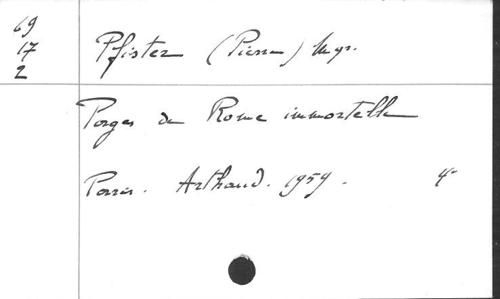 69
17
2
Pfister (Pierre) Mgr.
Pages de Rome immortelle
Paris. Arthaud. 1959. 4°